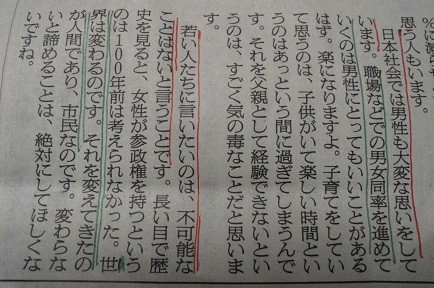 思う人もいます。
日本社会では男性も大変な思いをして
います。職場などでの男女同率を進めて
いくのは男性にとってもいいことがある
はず。楽になりますよ。子育てをしてい
て思うのは、子供がいて楽しい時間とい
うのはあっという間に過ぎてしまうんで
す。それを父親として経験できないとい
うのは、すごく気の毒なことだと思いま
す。
若い人たちに言いたいのは、不可能な
ことはないということです。長い目で歴
史を見ると、女性が参政権を持つという
のは100年前は考えられなかった。世
界は変わるのです。それを変えてきたの
が人間であり、市民なのです。変わらな
いと諦めることは、絶対にしてほしくな
いですね。